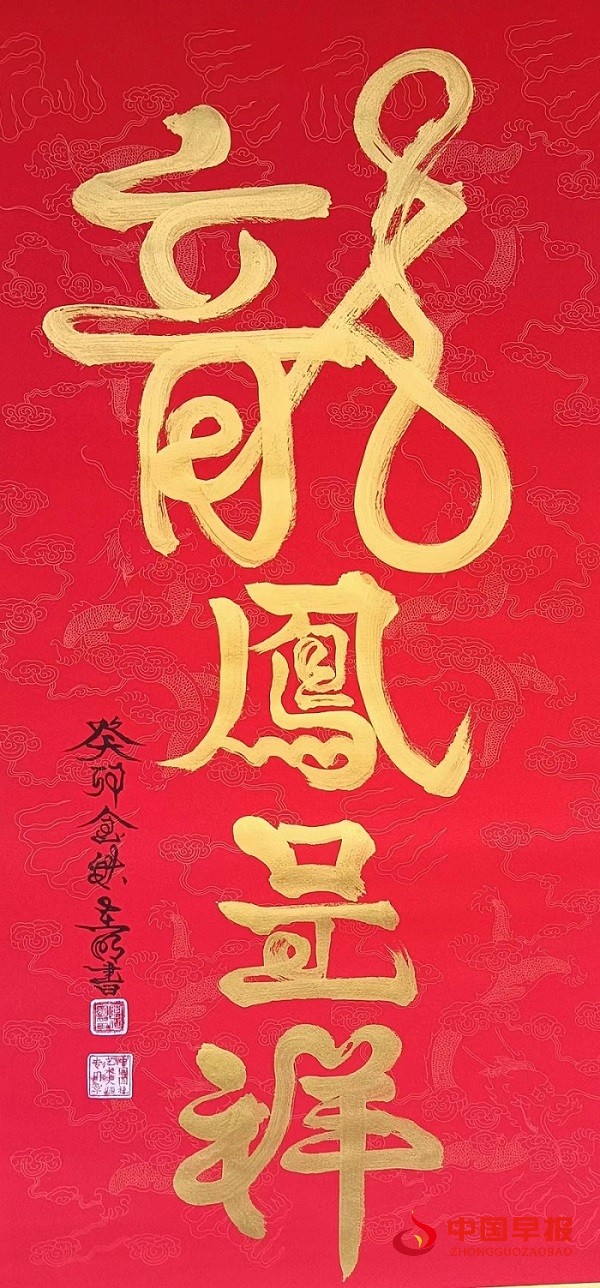 龍鳳呈祥
癸卯金秋 書
中国早报
ZHONGGUOZAOBAO